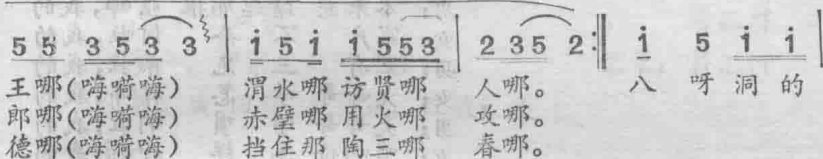 5 5 3 5 3 3 | i 5 i i 5 5 3 | 2 3 5 2 :‖ i 5 i i |
王哪(嗨嗬嗨) 渭水哪访贤哪 人哪。 八 呀 洞 的
郎哪(嗨嗬嗨) 赤壁哪用火哪 攻哪。
德哪(嗨嗬嗨) 挡住那陶三哪 春哪。